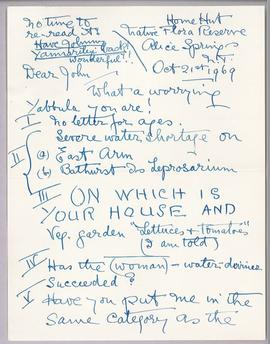 no time to
re-read it
Have Johnny
Yamoritji back?
Wonderful!!
Home Hut
Native Flora Reserve
Alice Springs
N.T.
Oct 21st 1969
Dear John
What a worrying
Yabbula you are!
I No letter for ages.
II Severe water shortage on
(a) East Arm
(b) Bathurst Is Leprosarium
III ON WHICH IS
YOUR HOUSE AND
Veg. garden "Lettuces + tomatoes"
(I am told)
IV Has the (woman) – water-divinee
Succeeded?
V Have you put me in the
Same Category as the